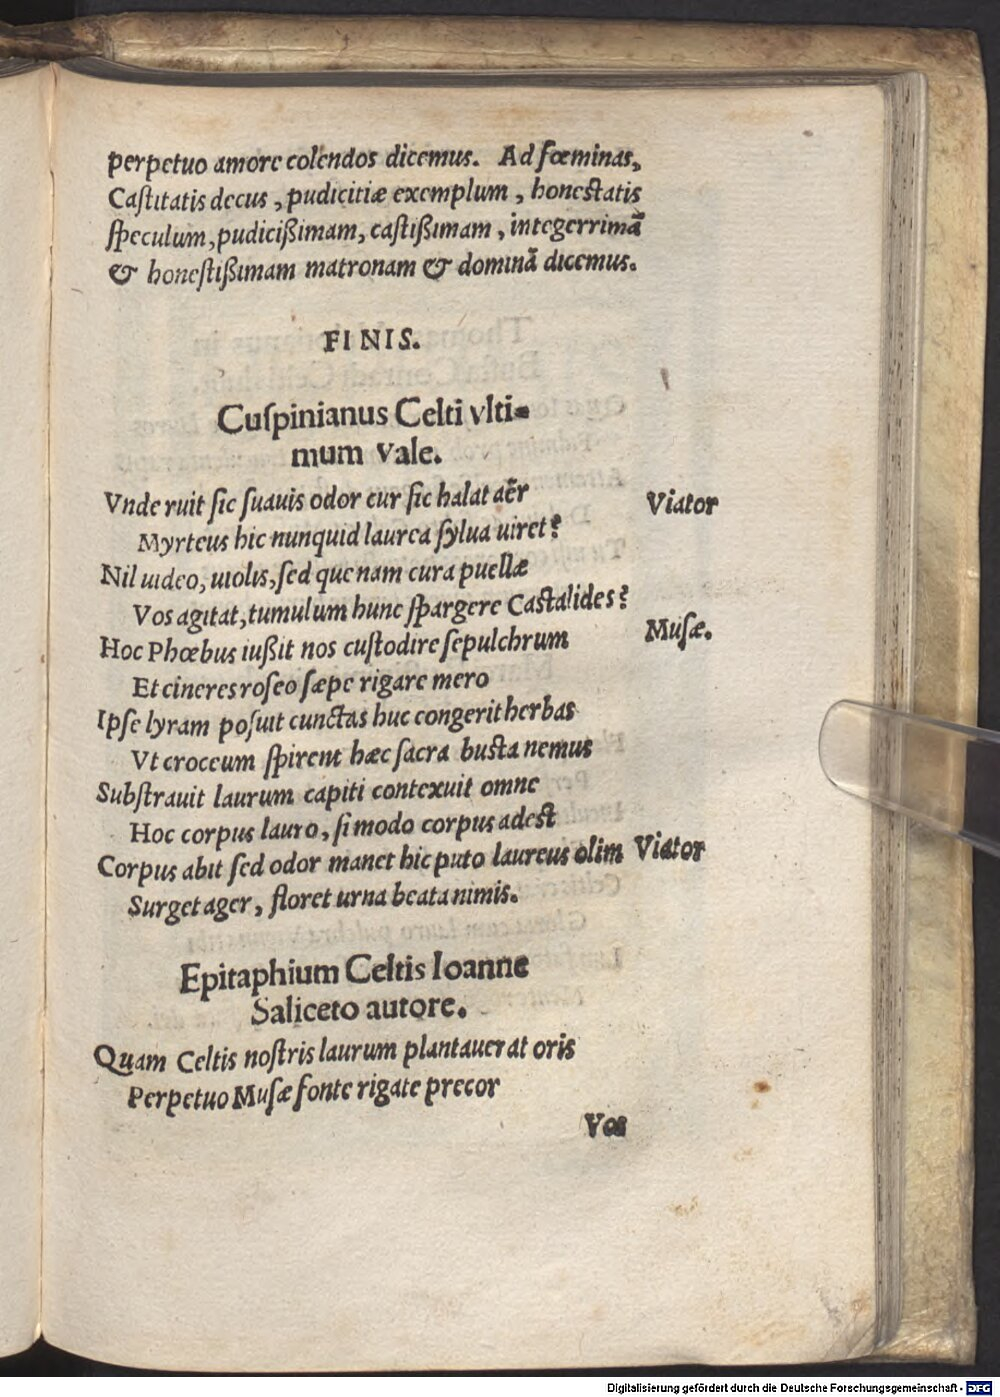 perpetuo amore colendos dicemus. Ad fœminas,
Caſtitatis decus, pudicitiæ exemplum, honeſtatis
ſpeculum, pudicißimam, caſtißimam, integerrimā
& honeſtißimam matronam & dominā dicemus.
FINIS.
Cuſpinianus Celti vlti-
mum vale.
Vnde ruit ſic ſuauis odor cur ſic halat aër Viator
Myrteus hic nunquid laurea ſylua uiret?
Nil uideo, uiolis, ſed que nam cura puellæ
Vos agitat, tumulum hunc ſpargere Caſtalides?
Hoc Phœbus iußit nos cuſtodire ſepulchrum Muſæ.
Et cineres roſeo ſæpe rigare mero
Ipſe lyram poſuit cunctas huc congerit herbas
Vt croceum ſpirent hæc ſacra buſta nemus
Subſtrauit laurum capiti contexuit omne
Hoc corpus lauro, ſi modo corpus adeſt
Corpus abit ſed odor manet hic puto laureus olim Viator
Surget ager, floret urna beata nimis.
Epitaphium Celtis Ioanne
Saliceto autore.
Quam Celtis noſtris laurum plantauerat oris
Perpetuo Muſæ fonte rigate precor
Vos
Digitalisierung gefördert durch die Deutsche Forschungsgemeinschaft - DFG